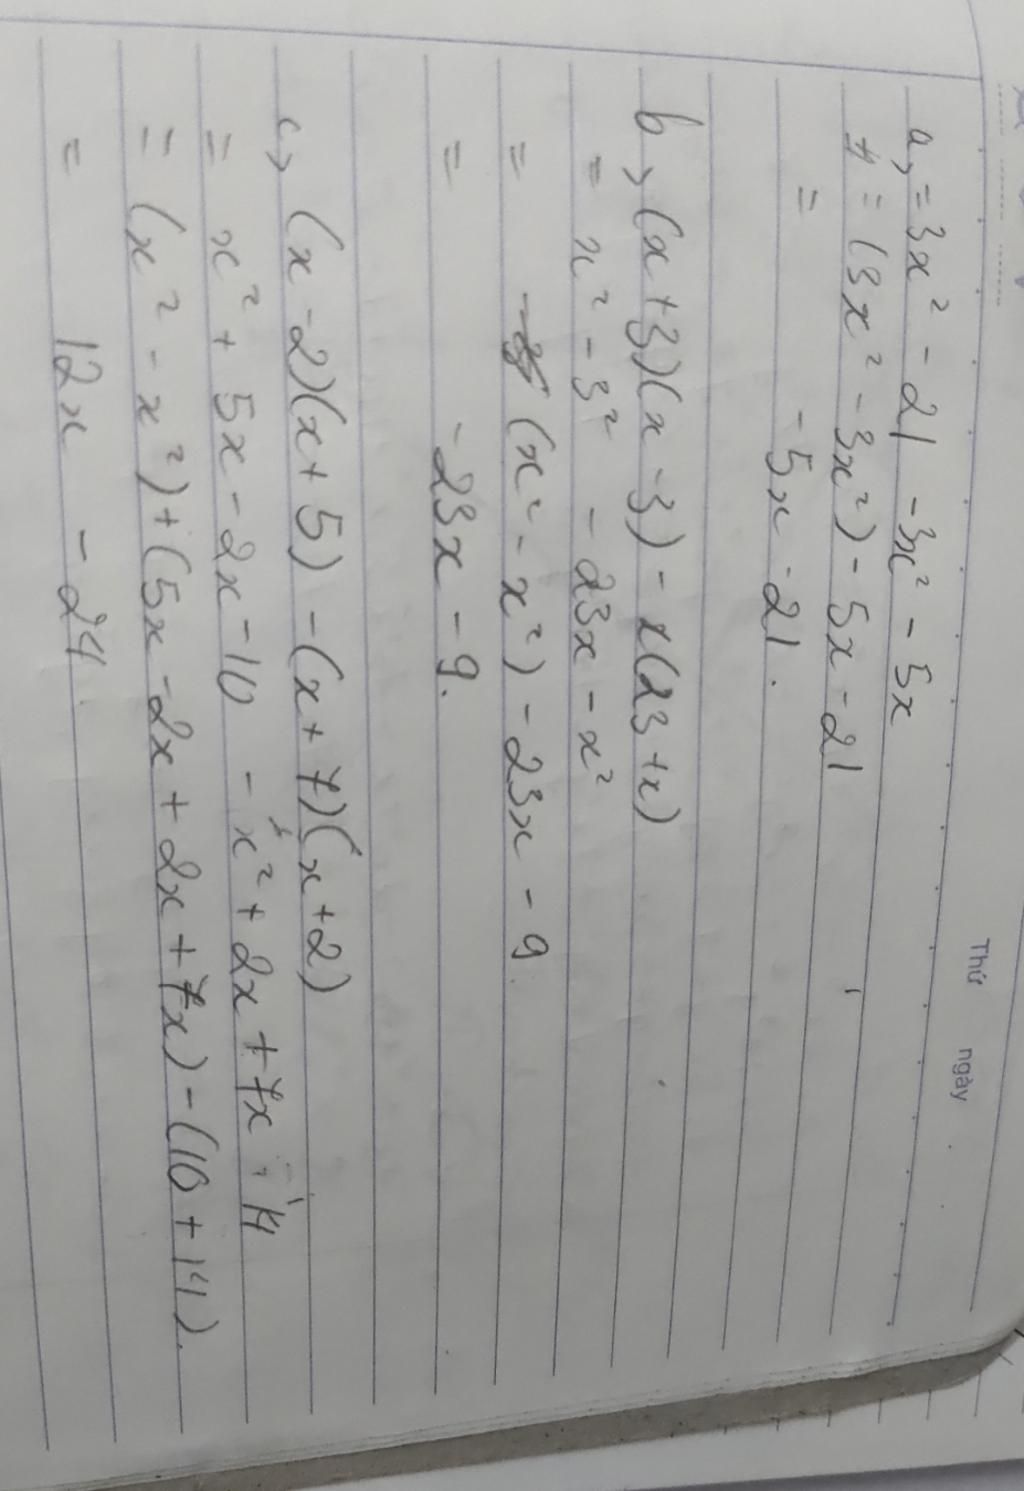 Thứ ngày
a, = 3x² - 21 - 3x² - 5x
= (3x² - 3x²) - 5x - 21
= -5x - 21.
b, (x+3)(x-3) - x(23+x)
= x² - 3² - 23x - x²
= (x² - x²) - 23x - 9
= -23x - 9.
c, (x-2)(x+5) - (x+7)(x+2)
= x² + 5x - 2x - 10 - x² + 2x + 7x - 14
= (x² - x²) + (5x - 2x + 2x + 7x) - (10 + 14).
= 12x - 24.